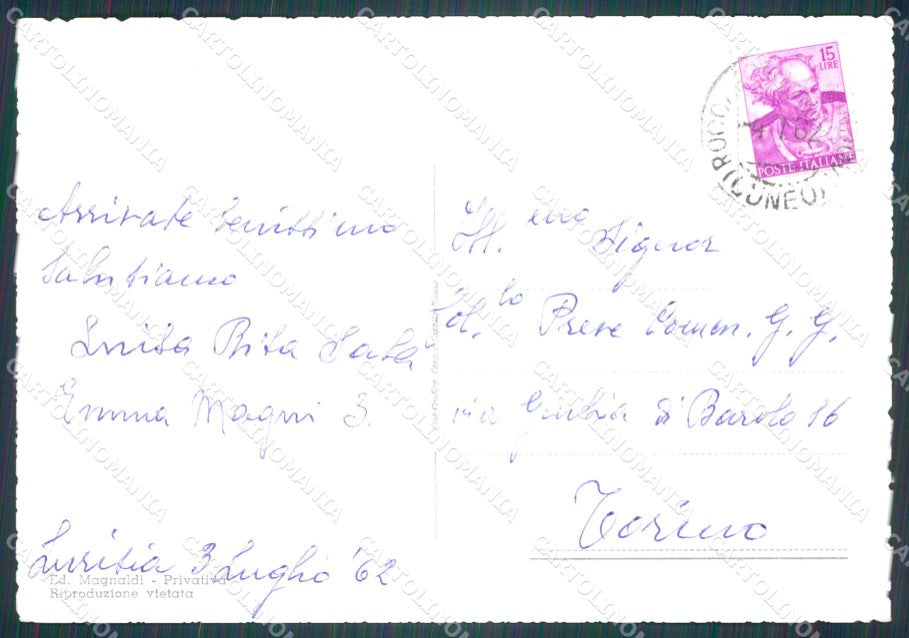 Arrivate benissimo
Salutiamo
Luisa Rita Sala
Emma Magni S.
Lurisia 3 Luglio '62
Ed. Magnaldi - Privativa
Riproduzione vietata
15
LIRE
POSTE ITALIANE
62
(CUNEO)
Ill.mo Signor
Col.lo Preve Comm. G. G.
via Giulia di Barolo 16
Torino
CARTOLINOMANIA